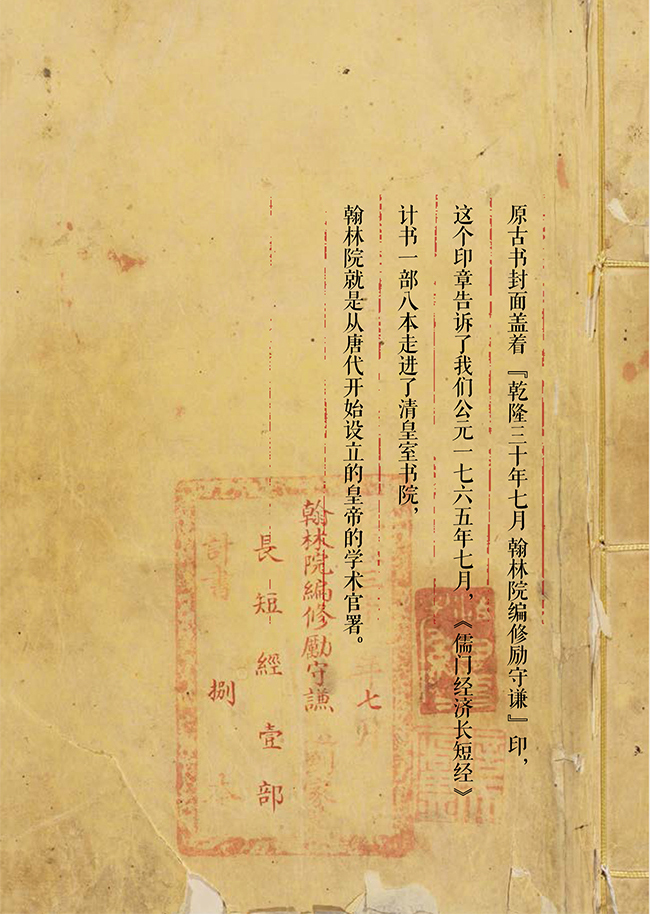 原古书封面盖着『乾隆三十年七月 翰林院编修励守谦』印，
这个印章告诉了我们公元一七六五年七月，《儒门经济长短经》
计书一部八本走进了清皇室书院，
翰林院就是从唐代开始设立的皇帝的学术官署。
年七
翰林院編修勵守謙
長短經壹部
計書捌